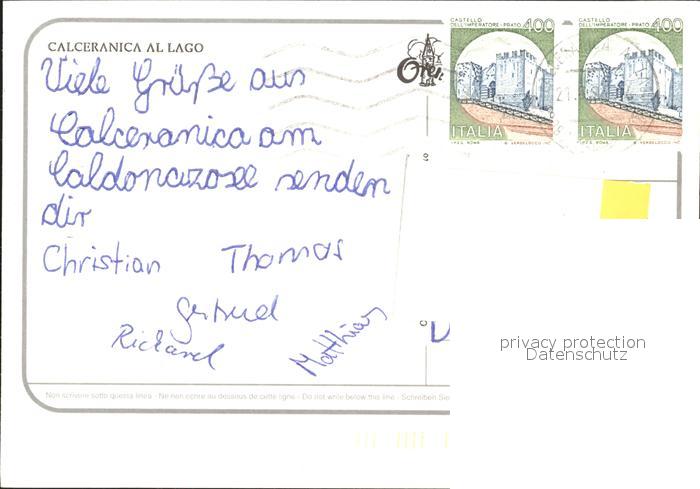 CALCERANICA AL LAGO
CASTELLO
DELL'IMPERATORE - PRATO 400
CASTELLO
DELL'IMPERATORE - PRATO 400
ITALIA
ITALIA
Viele Grüße aus
Calceranica am
Caldonazosee senden
dir
Christian Thomas
Gertrud
Richard
Matthias
privacy protection
Datenschutz
Non scrivere sotto questa linea - Ne non ecrire au dessous de cette ligne - Do not write below this line - Schreiben Sie